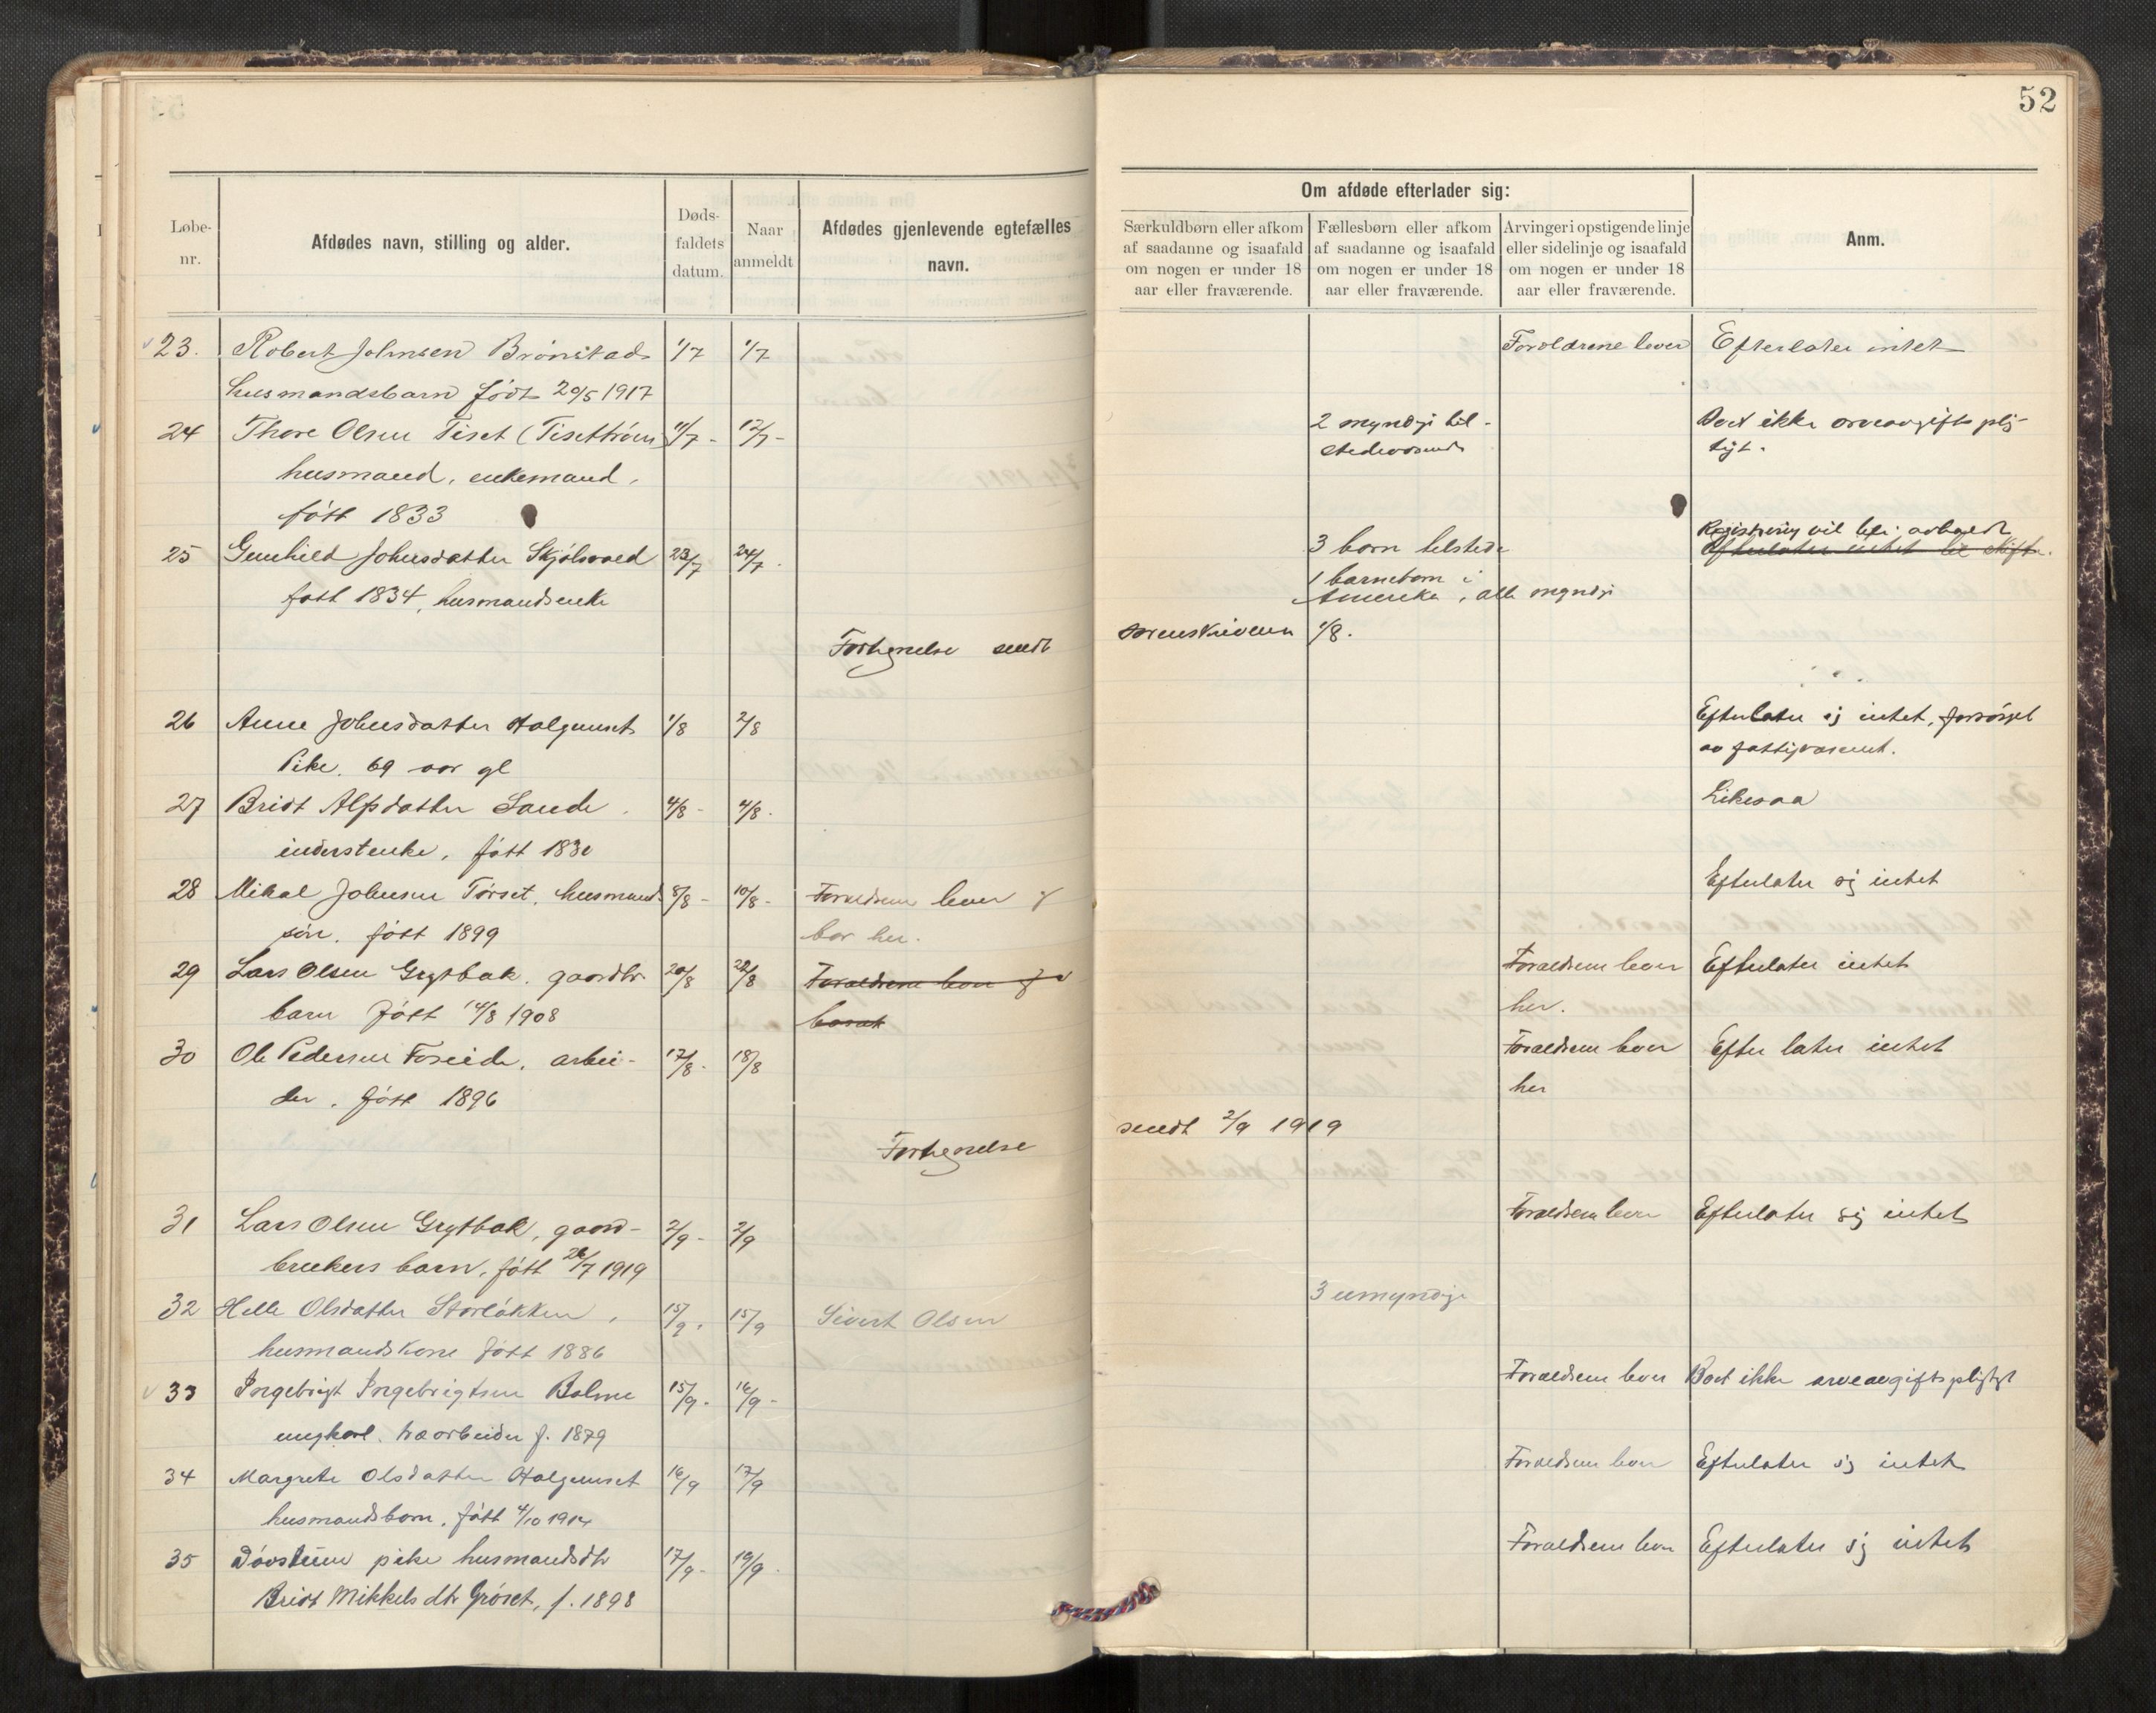 52
Løbe-
nr.
Afdødes navn, stilling og alder.
Døds-
faldets
datum.
Naar
anmeldt
Afdødes gjenlevende egtefælles
navn.
Om afdøde efterlader sig:
Særkuldbørn eller afkom
af saadanne og isaafald
om nogen er under 18
aar eller fraværende.
Fællesbørn eller afkom
af saadanne og isaafald
om nogen er under 18
aar eller fraværende.
Arvinger i opstigende linje
eller sidelinje og isaafald
om nogen er under 18
aar eller fraværende.
Anm.
23. Robert Johnsen Brønstad 1/7 1/7 Forældrene lever Efterlater intet
husmandsbarn født 20/5 1917
24 Thore Olsen Tiset (Tisettrøen) 11/7 - 12/7 - 2 myndji til- Boet ikke arveavgifts plig-
husmand, enkemand, stedeværende tigt.
født 1833
25 Gunhild Johnsdatter Skjølsvold 23/7 24/7. 3 barn tilstede Registrering vil bli avholdt
Efterlater intet til skifte.
født 1834, husmandsenke 1 barnebarn i
Amerika, alle myndji
Fortegnelse sendt sorenskriveren 1/8.
26 Anne Johnsdatter Halgunset 1/8 2/8 Efterlater sj intet, forsørget
Pike. 69 aar gl av fattigvæsenet.
27 Bridt Alfsdatter Sande. 4/8 - 4/8. Likesaa
inderstenke, født 1830
28 Mikal Johnsen Tørset, husmands 8/8 - 10/8 - Forældrene lever & Efterlater sj intet
søn. født 1899 bor her.
29 Lars Olsen Grytbak. gaardbr 20/8 22/8 Forældrene lever Forældrene lever Efterlater intet
barn født 14/8 1908 her.
30 Ole Pedersen Foseide, arbei- 17/8. 18/8 Forældrene lever Efterlater intet
der. født 1896 her
Fortegnelse sendt 2/9 1919
31 Lars Olsen Grytbak, gaard- 2/9 - 2/9 Forældrene lever Efterlater sig intet
brukers barn, født 26/7 1919
32 Helle Olsdatter Storløkken, 15/9. 15/9 Sivert Olsen 3 umyndige
husmandskone født 1886
33 Ingebrigt Ingebrigtsen Bolme 15/9. 16/9 - Forældrene lever Boet ikke arveavgiftspligtigt
ungkarl. træarbeider f. 1879
34 Margrete Olsdatter Halgunset 16/9 17/9 Forældrene lever Efterlater sj intet
husmandsbarn, født 4/10 1914
35 Døvstum pike husmandsdtr 17/9 - 19/9. Forældrene lever Efterlater sj intet
Bridt Mikkels dtr Grøset, f. 1898